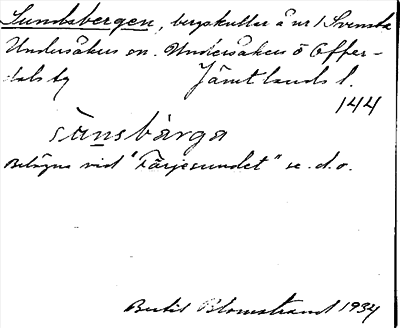 Sundsbergen, bergskullar å nr 1 Svenska
Undersåkers sn. Undersåkers o Offer-
dals tg Jämtlands l.
144
sänsbárga
Belägna vid "Färjesundet" se. d. o.
Bertil Blomstrand 1934